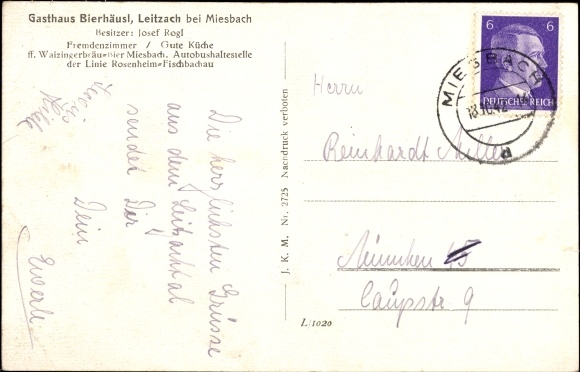 Gasthaus Bierhäusl, Leitzach bei Miesbach
Besitzer: Josef Rogl
Fremdenzimmer / Gute Küche
ff. Waizingerbräu-Bier Miesbach. Autobushaltestelle
der Linie Rosenheim-Fischbachau
Die herzlichsten Grüsse
aus dem Leitzachtal
sendet Dir
Dein
J. K. M. Nr. 2725 Nachdruck verboten
L/1020
6 6
DEUTSCHES REICH
MIESBACH
Herrn
Reinhardt Miller
München 45